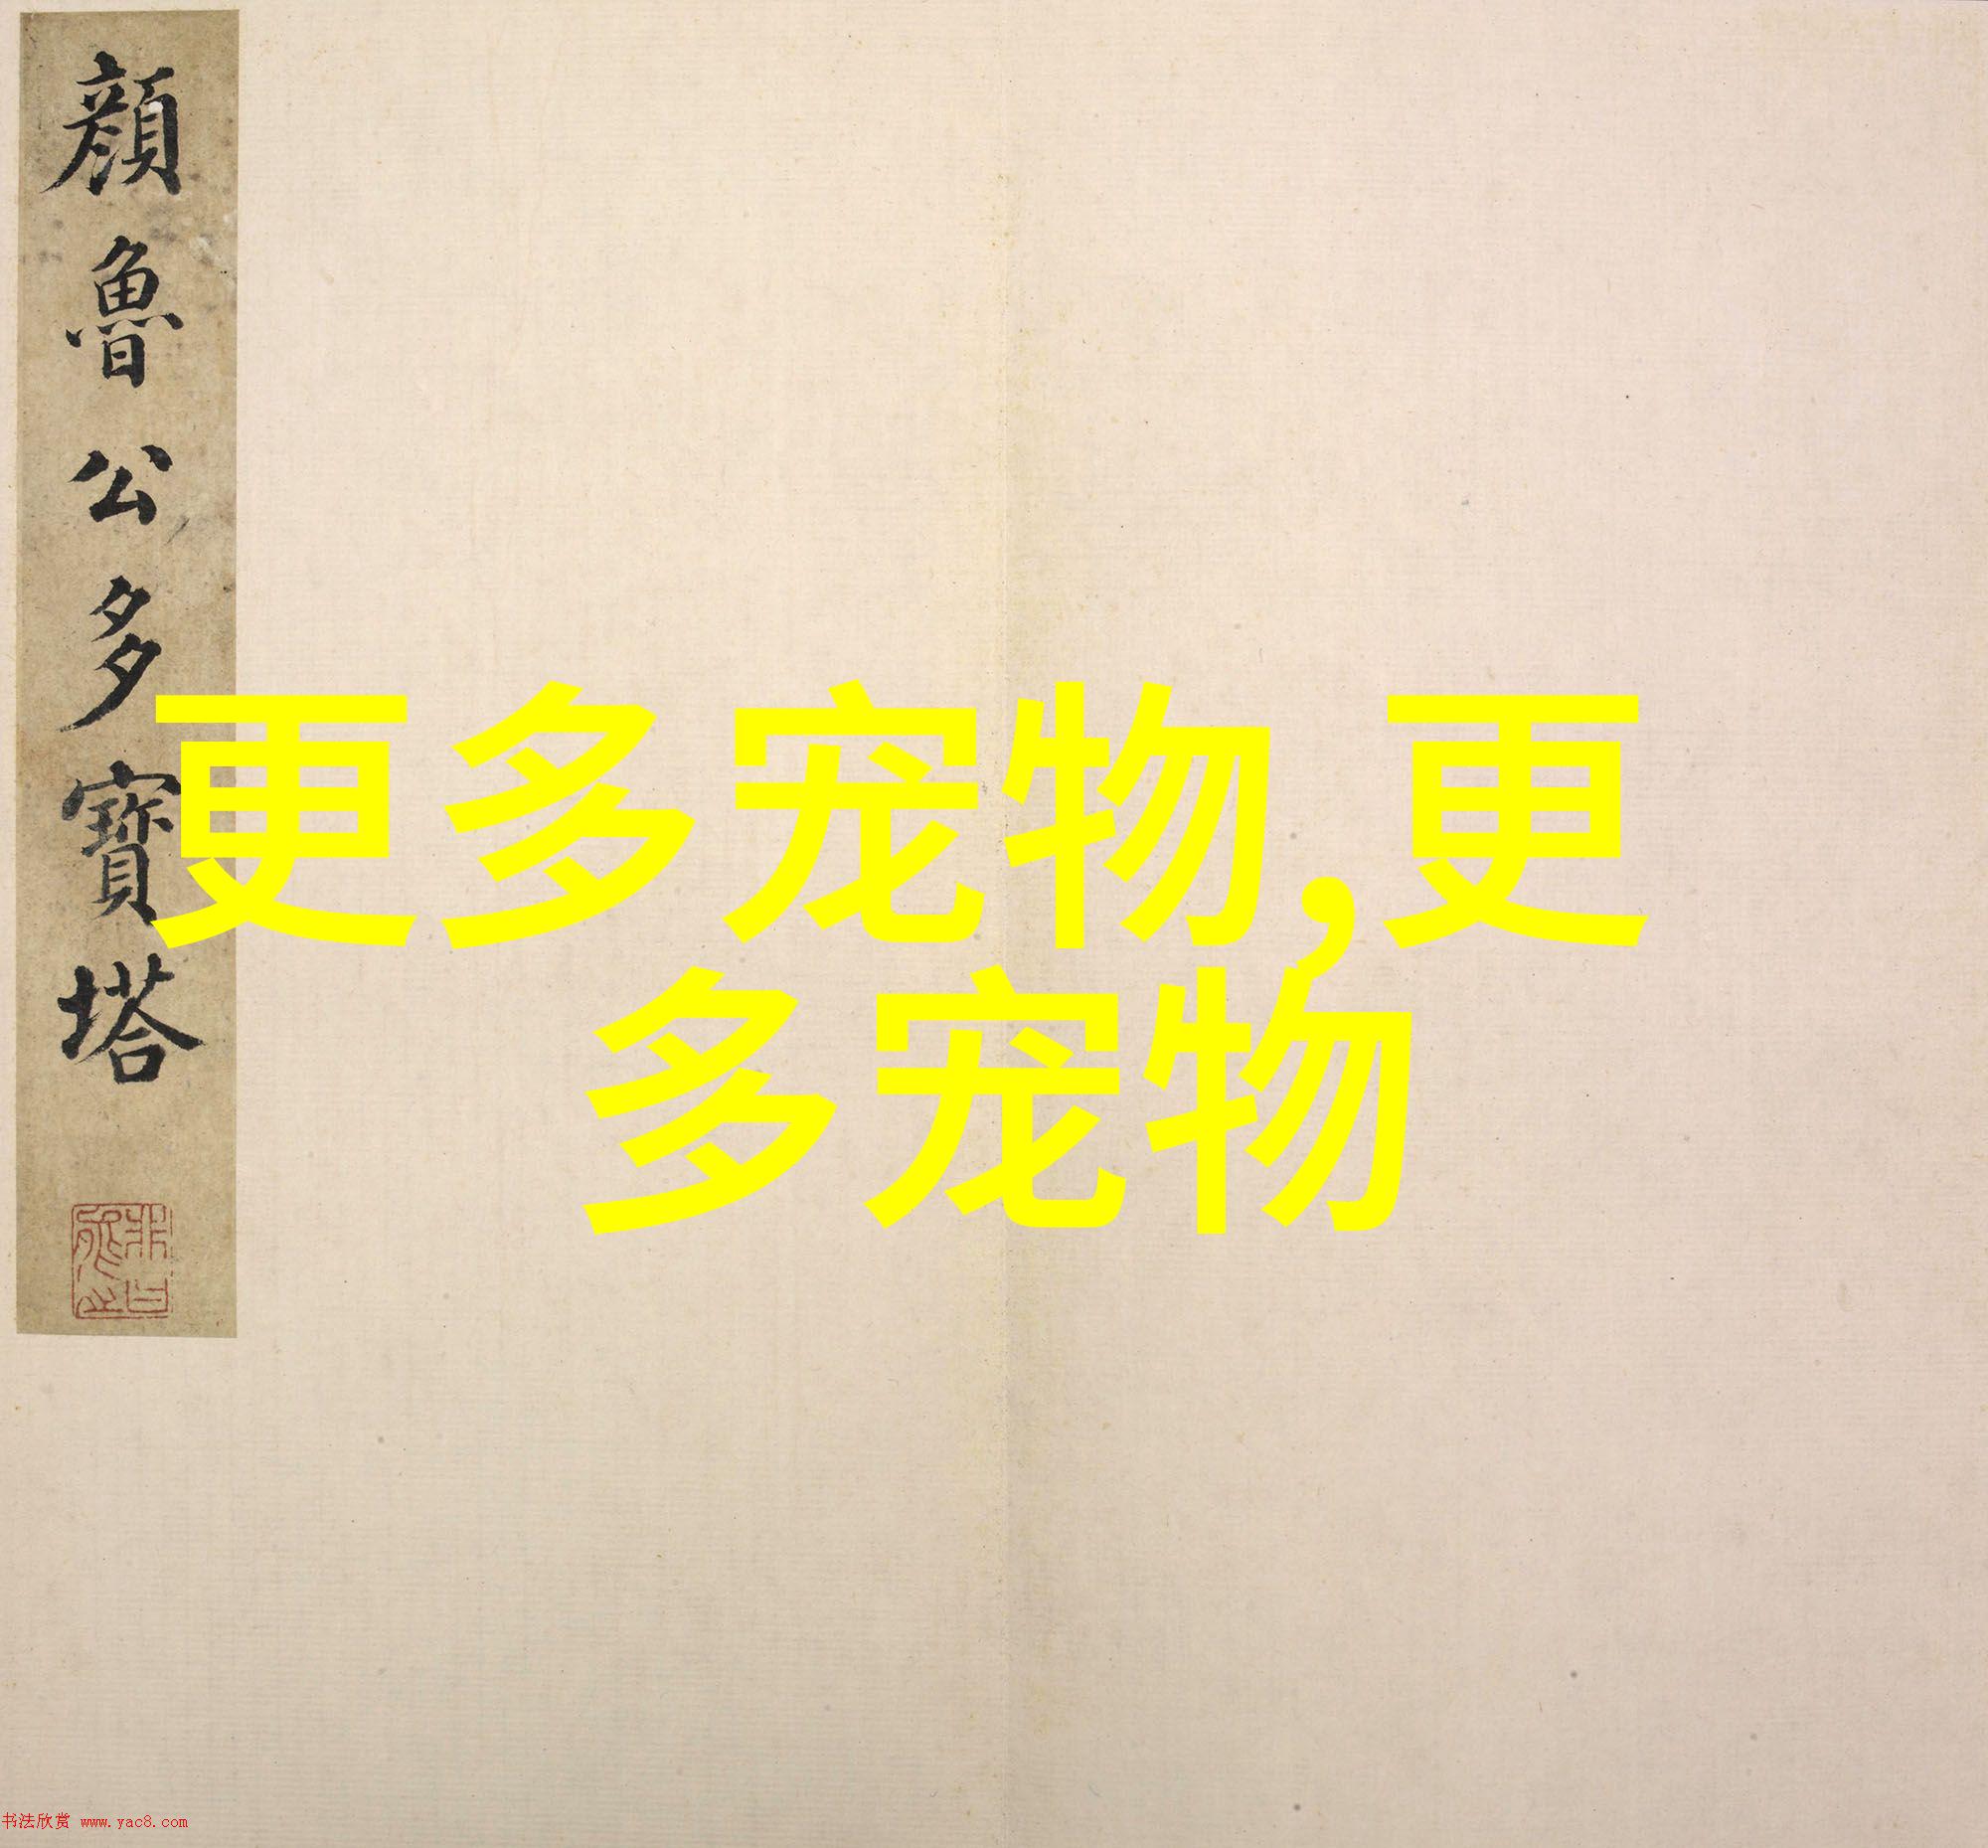 顏魯公多寶塔
更多宠物,更
多宠物
书法欣赏 www.yac8.com